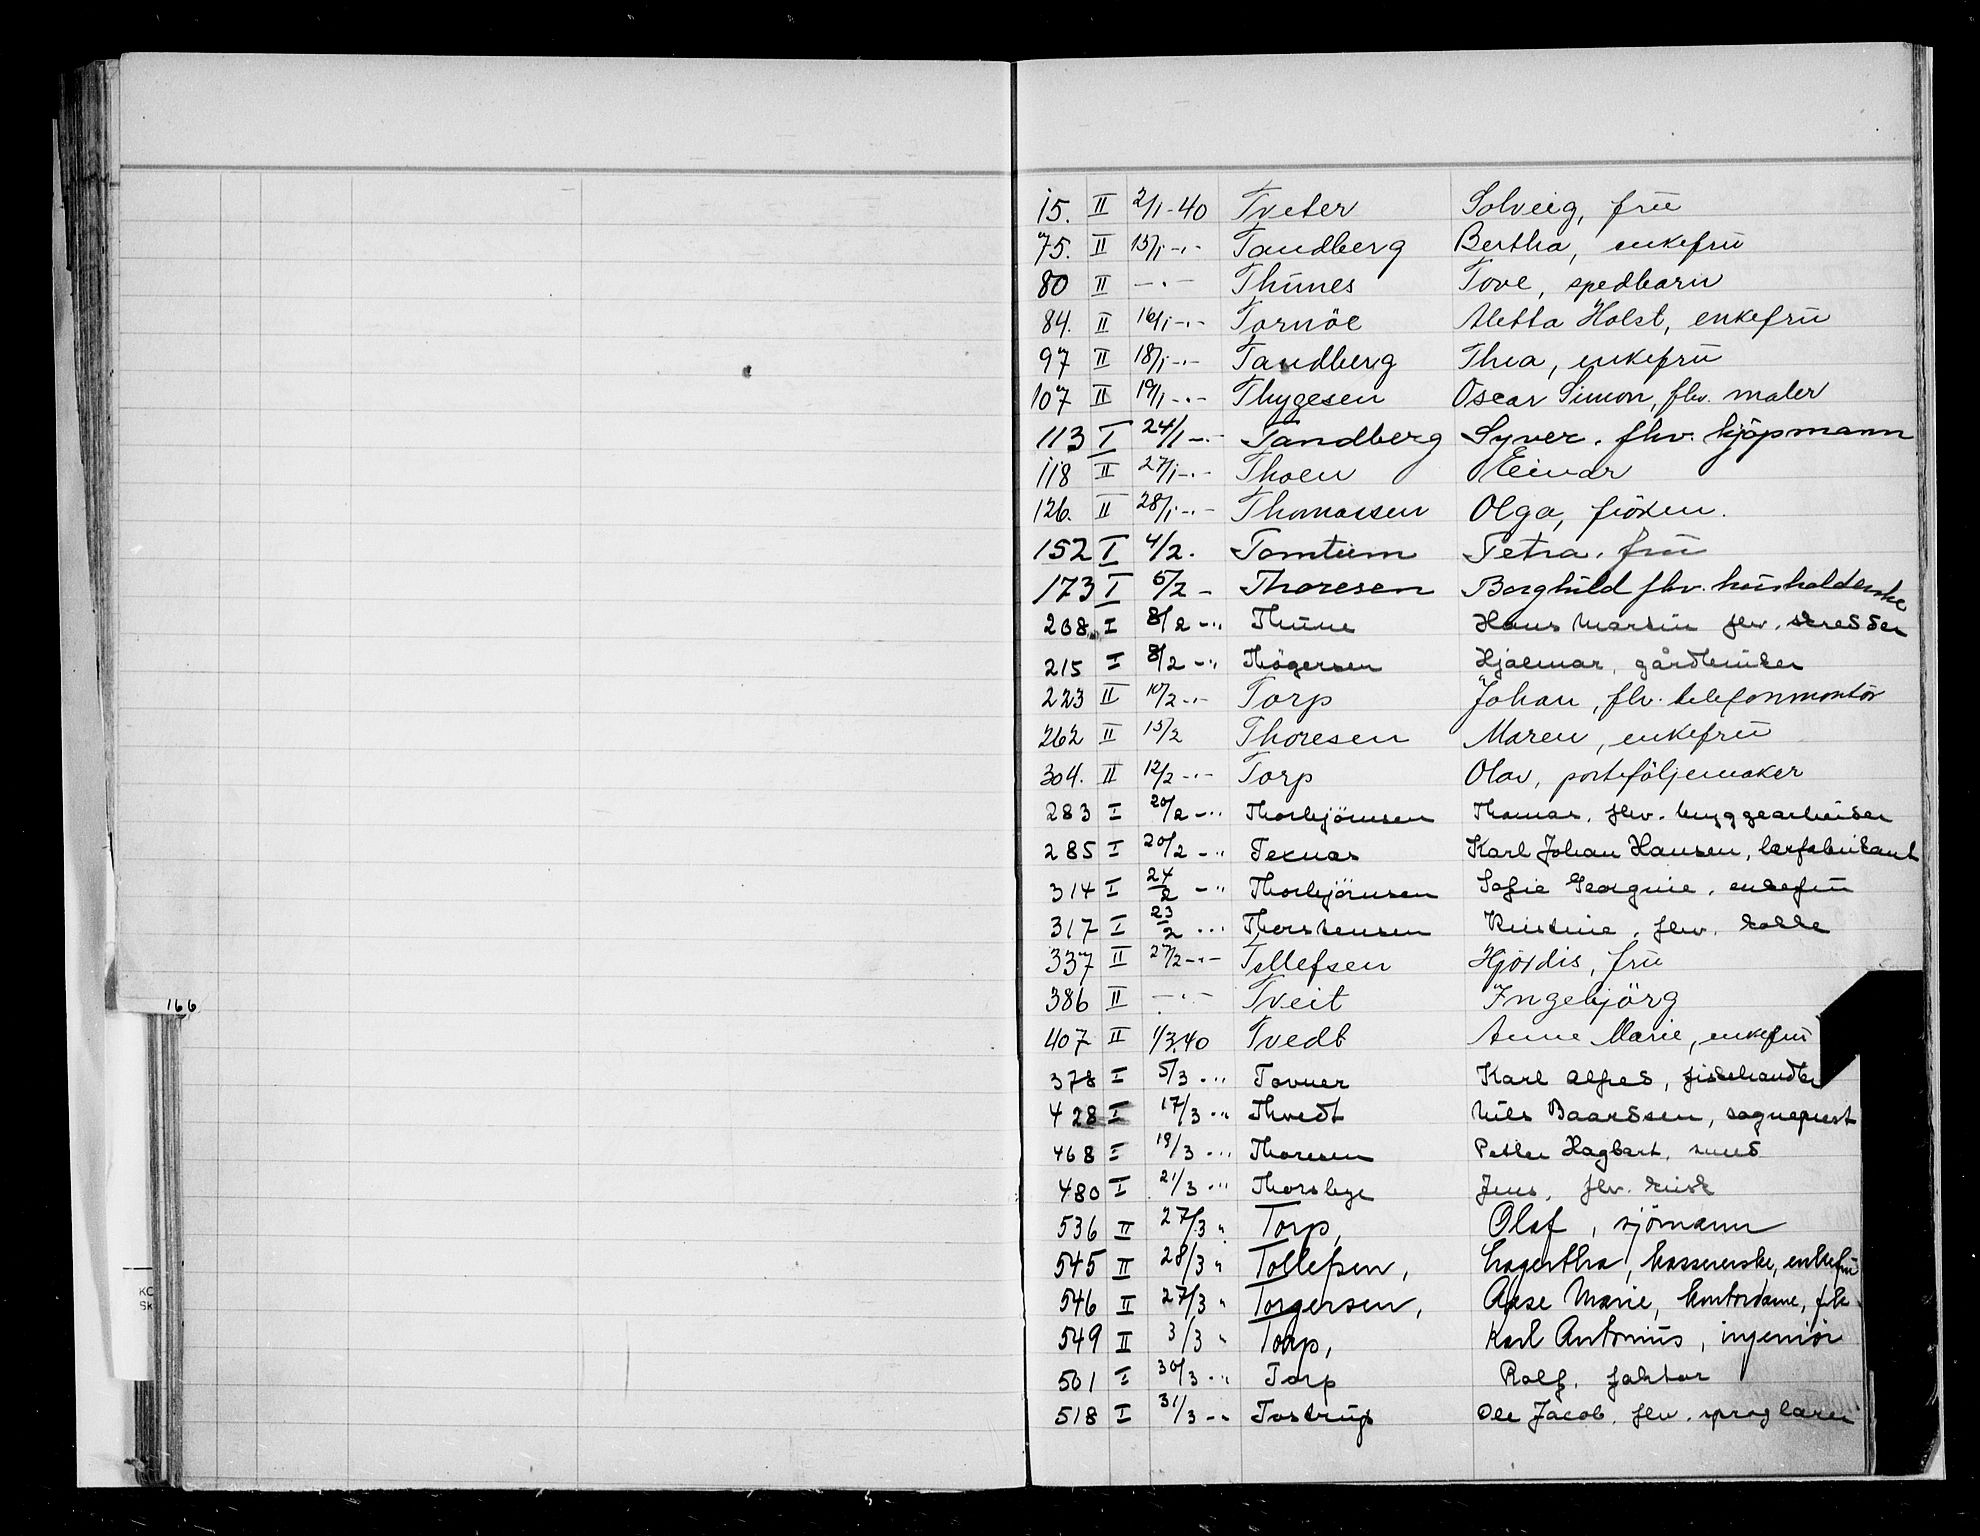 15. II 2/1-40 Tveter Solveig, frü
75. II 15/1 -.- Tandberg Bertha, enkefrü
80 II -.- Thünes Tove, spedbarn
84. II 16/1 -.- Tornöe Aletta Holst, enkefrü
97 II 18/1 -.- Tandberg Thea, enkefrü
107 II 19/1 -.- Thygesen Oscar Simon, fhv. maler
113 I 24/1 -.- Tandberg Syver. fhv. kjöpmann
118 II 27/1 -.- Thoen Einar
126. II 28/1 -.- Thomassen Olga, fröken.
152 I 4/2. Tomtüm Petra. frü
173 I 5/2 - Thoresen Borghild fhv. hüsholderske
208 I 8/2 -" Thüne Hans Martin fhv. skredder
215 I 8/2 -" Thögersen Hjalmar, gårdbrüker
223 II 10/2 -.- Torp Johan, fhv. telefonmontör
262 II 15/2 Thoresen Maren, enkefrü
304. II 12/2 -.- Torp Olav, porteföljemaker
283 I 20/2 -" Thorbjörnsen Thomas. fhv. bryggearbeider
285 I 20/2 -" Teknas Karl Johan Hansen, lærfabrikant
314 I 24/2 -" Thorbjörnsen Sofie Georgine. enkefrü
317 I 23/2 -" Thorstensen Kristine. fhv. kokke
337 II 27/2 -.- Tellefsen Hjördis, frü
386 II -.- Tveit Ingebjörg
407 II 1/3.40 Tvedt Anne Marie, enkefrü
378 I 5/3 -" Tovner Karl Alfred, fiskehandler
428 I 17/3 -" Thvedt Nils Baardsen, sogneprest
468 I 19/3 -" Thoresen Petter Hagbart, smed
480 I 21/3 -" Thorsbye Jens, fhv. küsk
536 II 27/3 " Torp, Olaf, sjömann
545 II 28/3 " Tollefsen, kassererske, enkefrü
546 II 27/3 " Torgersen, Aase Marie, kontordame, frk
549 II 3/3 " Torp, Karl Antonius, ingeniör
501 I 30/3 -" Torp Rolf, faktor
518 I 31/3 -" Tostrup Ole Jacob. fhv. sproglærer
166